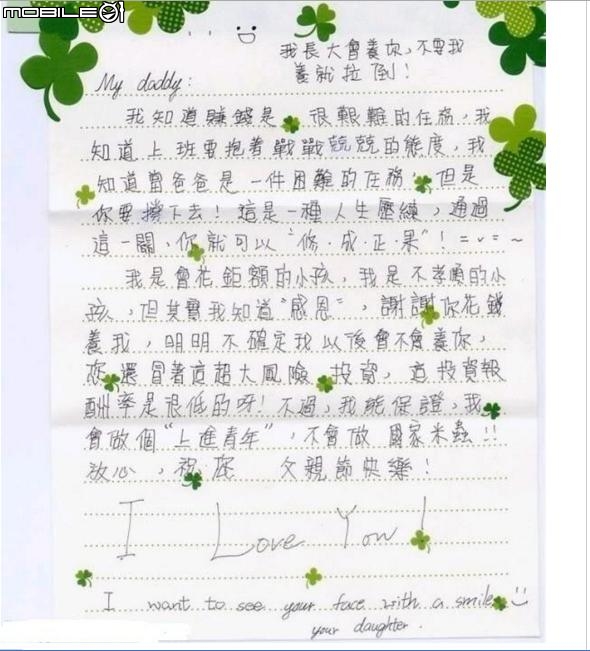 MOBILE01
我長大會養你,不要我
養就拉倒!
My daddy:
我知道賺錢是 很艱難的任務,我
知道上班要抱著戰戰兢兢的態度,我
知道當爸爸是一件困難的任務,但是
你要撐下去!這是一種人生歷練,通過
這一關,你就可以“修.成.正.果”! =v=~
我是會花鉅額的小孩,我是不孝順的小
孩,但其實我知道“感恩”,謝謝你花錢
養我,明明不確定我以後會不會養你,
您還冒著這超大風險 投資,這投資報
酬率是很低的呀!不過,我能保證,我
會做個“上進青年”,不會做 國家米蟲!!
放心,祝您 父親節快樂!
I Love You!
I want to see your face with a smile
your daughter.